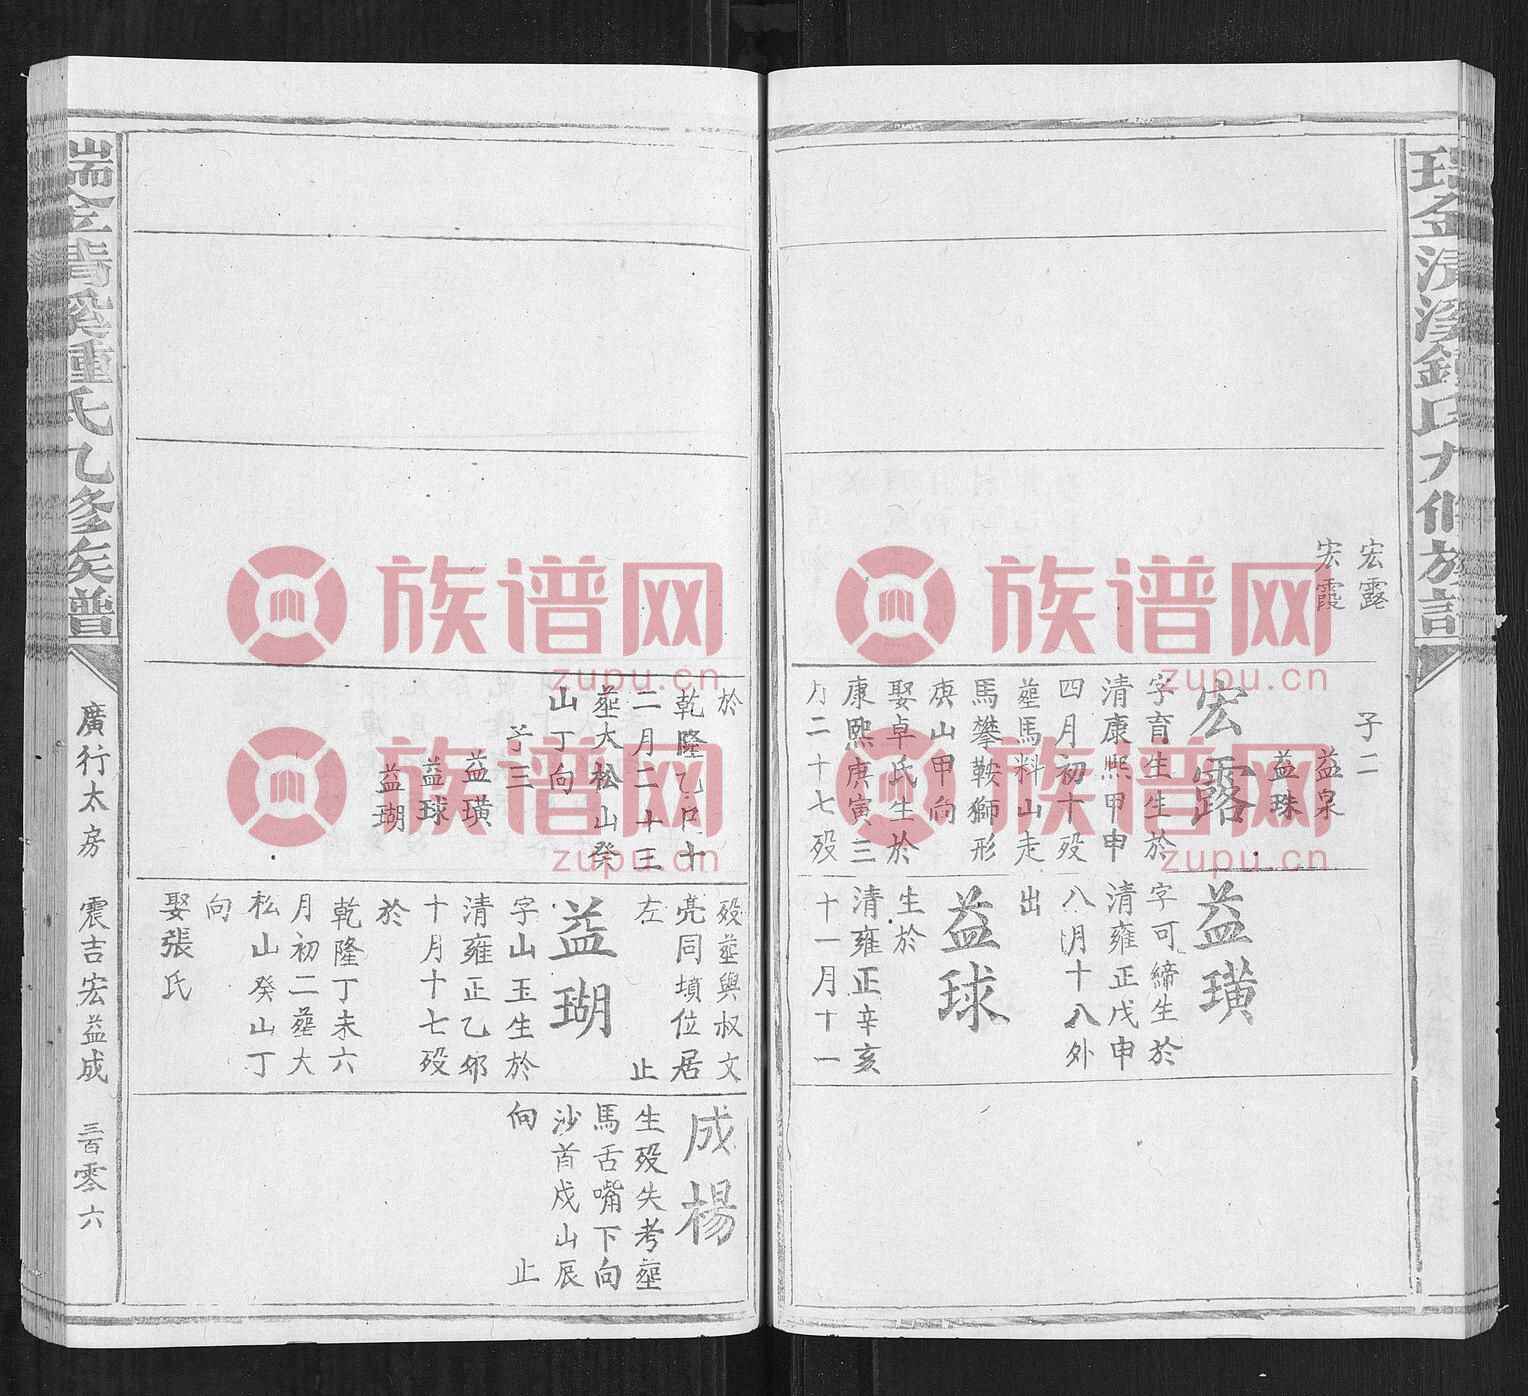 瑞金清溪鍾氏九修族譜
宏露
宏霞
子二
益泉
益珠
宏露
字育生生於
清康熙甲申
四月初十歿
葬馬料山走
馬攀鞍獅形
庚山甲向
娶卓氏生於
康熙庚寅三
月二十七歿
益璜
字可締生於
清雍正戊申
八月十八外
出
益球
生於
清雍正辛亥
十一月十一
於
乾隆乙巳十
二月二十三
葬大松山癸
山丁向
子三
益璜
益球
益瑚
歿葬與叔文
亮同墳位居
左 止
益瑚
字山玉生於
清雍正乙卯
十月十七歿
於
乾隆丁未六
月初二葬大
松山癸山丁
向
娶張氏
成楊
生歿失考葬
馬舌嘴下向
沙首戍山辰
向 止
瑞金清溪鍾氏九修族譜
廣行太房 震吉宏益成 三百零六
族谱网
zupu.cn
族谱网
zupu.cn
族谱网
zupu.cn
族谱网
zupu.cn